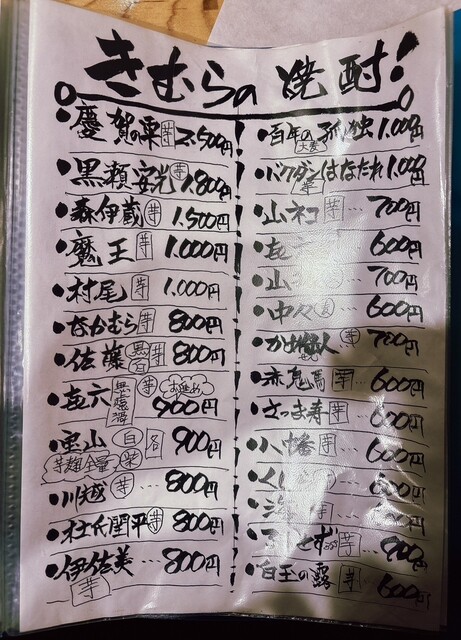 きむらの焼酎!
慶賀の雫 芋 2,500円
黒瀬安光 芋 1,800円
森伊蔵 芋 1,500円
魔王 芋 1,000円
村尾 芋 1,000円
なかむら 芋 800円
佐藤 黒 白 芋 800円
㐂六 無濾過 芋 お進め 900円
里山 白 各 900円
芋麹全量 紫
川越 芋 … 800円
杜氏潤平 芋 800円
伊佐美 … 800円
芋
百年の孤独 1,000円
大麦
バクダンはなたれ 1,000円
山ネコ 芋 … 700円
㐂 600円
山 700円
中々 麦 … 600円
芋 700円
赤兎馬 芋 … 600円
さつま寿 芋 … 600円
八幡 芋 … 600円
600円
芋 … 800円
白玉の露 芋 … 600円